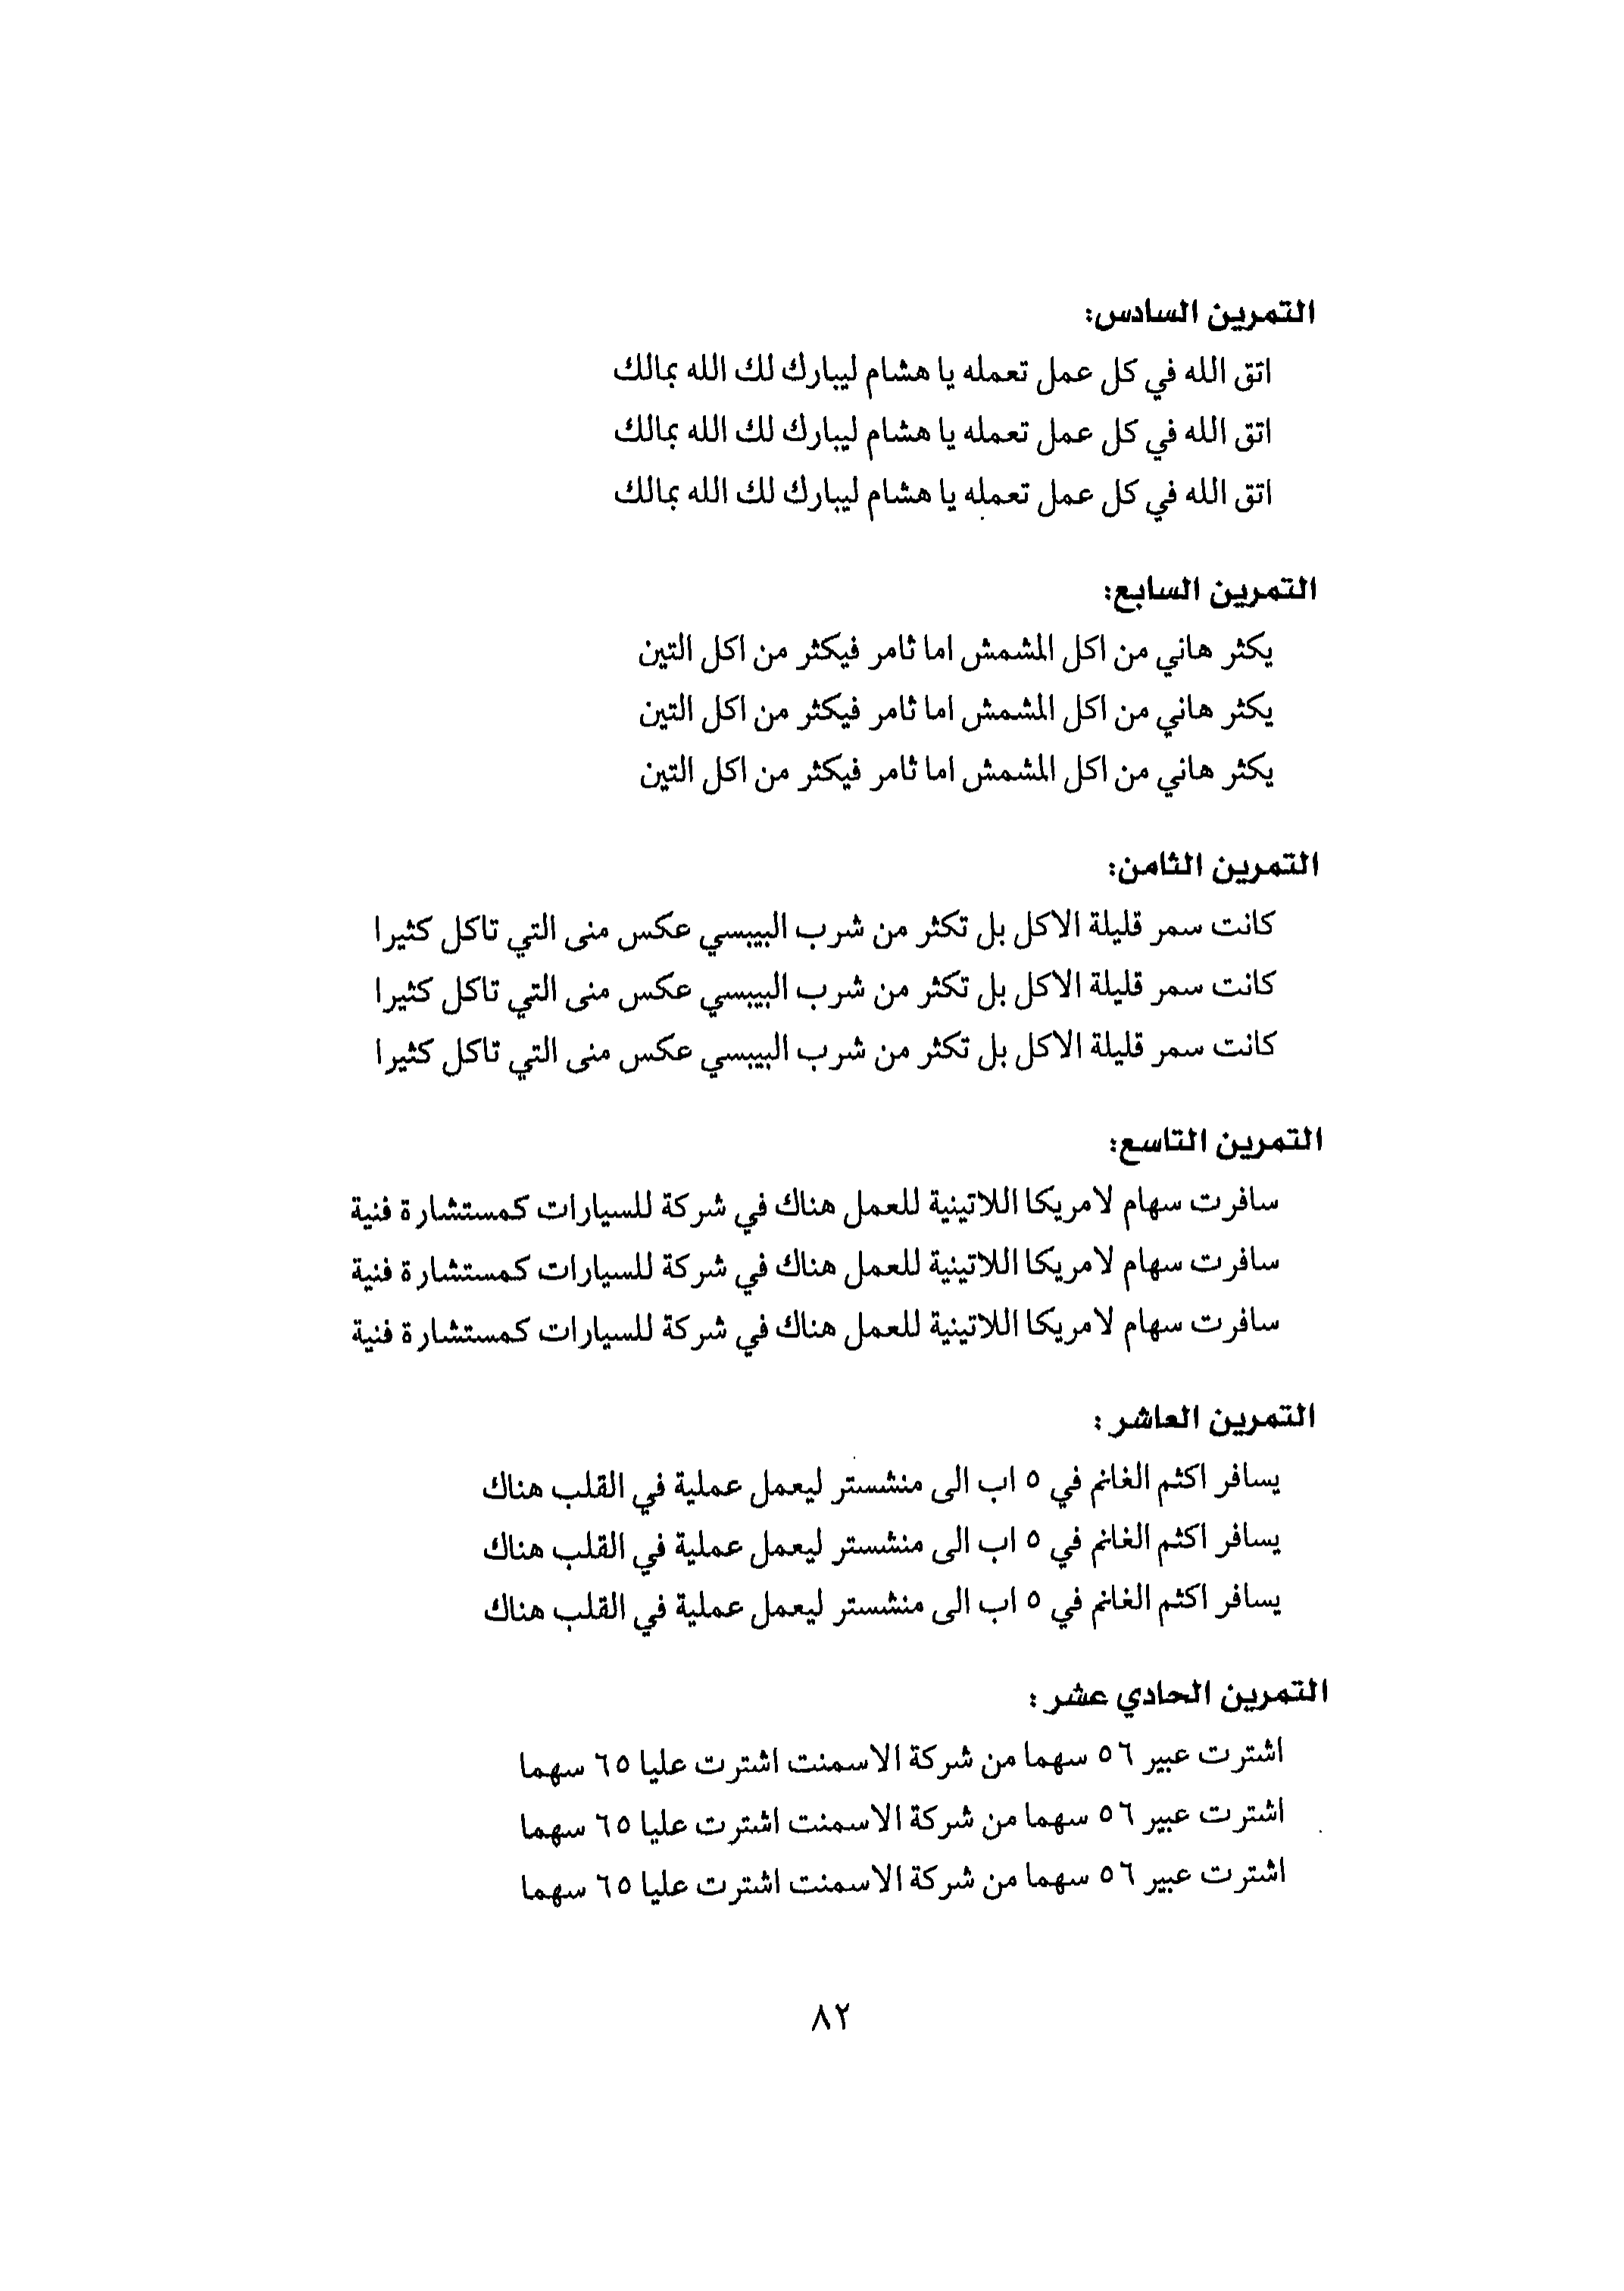 التمرين السادس:
اتق الله في كل عمل تعمله يا هشام ليبارك لك الله بمالك
اتق الله في كل عمل تعمله يا هشام ليبارك لك الله بمالك
اتق الله في كل عمل تعمله يا هشام ليبارك لك الله بمالك
التمرين السابع:
يكثر هاني من اكل المشمش اما ثامر فيكثر من اكل التين
يكثر هاني من اكل المشمش اما ثامر فيكثر من اكل التين
يكثر هاني من اكل المشمش اما ثامر فيكثر من اكل التين
التمرين الثامن:
كانت سمر قليلة الاكل بل تكثر من شرب البيبسي عكس منى التي تاكل كثيرا
كانت سمر قليلة الاكل بل تكثر من شرب البيبسي عكس منى التي تاكل كثيرا
كانت سمر قليلة الاكل بل تكثر من شرب البيبسي عكس منى التي تاكل كثيرا
التمرين التاسع:
سافرت سهام لامريكا اللاتينية للعمل هناك في شركة للسيارات كمستشارة فنية
سافرت سهام لامريكا اللاتينية للعمل هناك في شركة للسيارات كمستشارة فنية
سافرت سهام لامريكا اللاتينية للعمل هناك في شركة للسيارات كمستشارة فنية
التمرين العاشر :
يسافر اكثم الغانم في ٥ اب الى منشستر ليعمل عملية في القلب هناك
يسافر اكثم الغانم في ٥ اب الى منشستر ليعمل عملية في القلب هناك
يسافر اكثم الغانم في ٥ اب الى منشستر ليعمل عملية في القلب هناك
التمرين الحادي عشر :
اشترت عبير ٥٦ سهما من شركة الاسمنت اشترت عليا ٦٥ سهما
اشترت عبير ٥٦ سهما من شركة الاسمنت اشترت عليا ٦٥ سهما
اشترت عبير ٥٦ سهما من شركة الاسمنت اشترت عليا ٦٥ سهما
٨٢